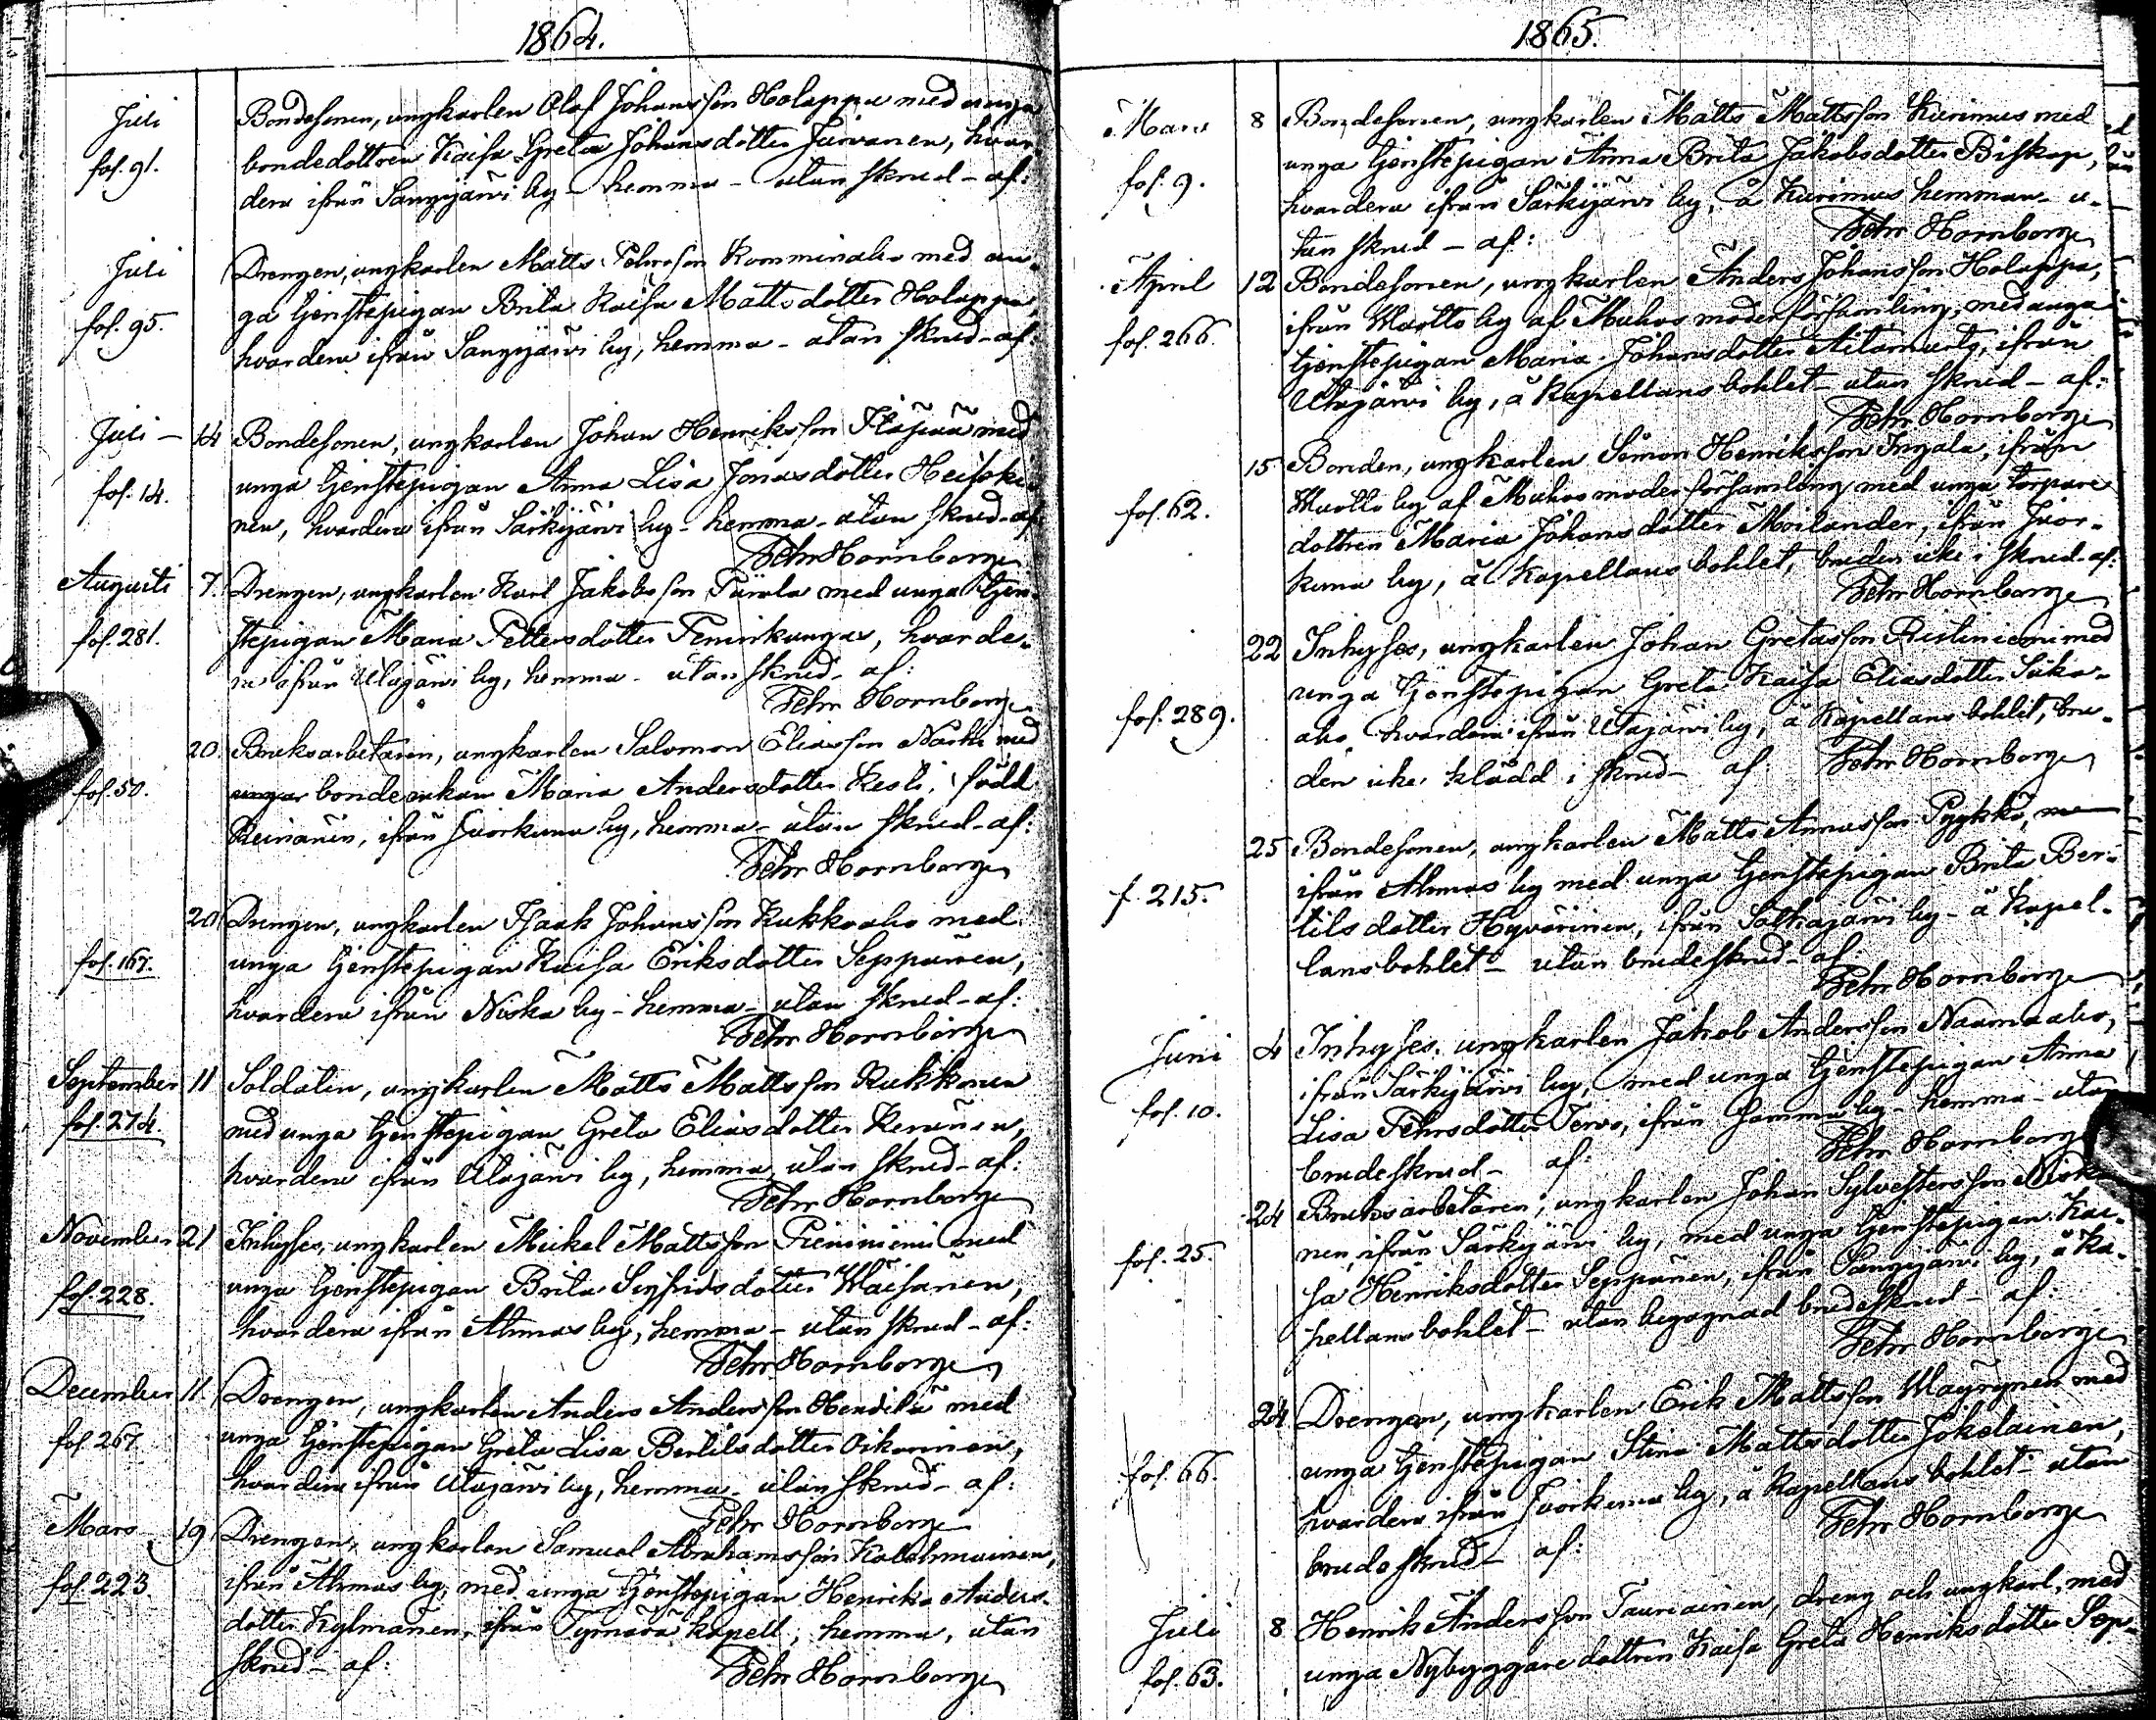 1864.
Juli
fol. 91.
Bondesonen, ungkarlen Olof Johansson Holappa med unga
bondedottren Kaisa Greta Johansdotter Juvanen, hvar-
dera ifrån Sangijärvi by - hemma - utan skrud - af:
Juli
fol. 95.
Drengen, ungkarlen Matts Pehrsson Komminaho med un-
ga tjenstepigan Brita Kaisa Mattsdotter Holappa,
hvardera ifrån Sangijärvi by, hemma - utan skrud - af:
Juli - 14
fol. 14.
Bondesonen, ungkarlen Johan Henriksson med
unga tjenstepigan Anna Lisa Jonasdotter Heiski-
nen, hvardera ifrån Särkijärvi by - hemma - utan skrud - af:
Fehr Hornborg
Augusti 7.
fol. 281.
Drengen, ungkarlen Karl Jakobsson Pärola med unga tjen-
stepigan Maria Pettersdotter hvarde-
ra ifrån Utajärvi by, hemma - utan skrud - af:
Fehr Hornborg
20.
fol. 50.
Bruksarbetaren, ungkarlen Salomon Eliasson Närhi med
bondeenkan Maria Andersdotter Kesti, född
Keinänen, ifrån Juorkuna by, hemma - utan skrud - af:
Fehr Hornborg
20
fol. 167.
Drengen, ungkarlen Isaak Johansson Kukkoaho med
unga tjenstepigan Kaisa Eriksdotter Seppänen,
hvardera ifrån Niska by - hemma - utan skrud - af:
Fehr Hornborg
September 11
fol. 274.
Soldaten, ungkarlen Matts Mattsson Kukkonen
med unga tjenstepigan Greta Eliasdotter Keränen,
hvardera ifrån Utajärvi by, hemma, utan skrud - af:
Fehr Hornborg
November 21
fol. 228.
Inhyses, ungkarlen Mickel Mattsson Pieniniemi med
unga tjenstepigan Brita Sigfridsdotter Wäisänen,
hvardera ifrån Ahmas by, hemma - utan skrud - af:
Fehr Hornborg
December 11.
fol. 267
Drengen, ungkarlen Anders Andersson Heikilä med
unga tjenstepigan Greta Lisa Bertilsdotter Oikarinen,
hvardera ifrån Utajärvi by, hemma - utan skrud - af:
Fehr Hornborg
Mars - 19
fol. 223
Drengen, ungkarlen Samuel Abrahamsson Kolehmainen,
ifrån Ahmas by, med unga tjenstepigan Henrika Anders-
dotter Kylmänen, ifrån Tyrnävä kapell, hemma, utan
skrud - af:
Fehr Hornborg
1865.
Mars 8
fol. 9.
Bondesonen, ungkarlen Matts Mattsson Kurimus med
unga tjenstepigan Anna Brita Jakobsdotter Biskop,
hvardera ifrån Särkijärvi by, å Kurimus hemman - u-
tan skrud - af:
Fehr Hornborg
April 12
fol. 266.
Bondesonen, ungkarlen Anders Johansson Holappa,
ifrån Muotto by af Muhos moderförsamling, med unga
tjenstepigan Maria Johansdotter Aitamurto, ifrån
Utajärvi by, å Kapellans bohlet - utan skrud - af:
Fehr Hornborg
15
fol. 62.
Bonden, ungkarlen Simon Henriksson Ingala, ifrån
Muotto by af Muhos moderförsamling med unga torpare
dottren Maria Johansdotter Moilander, ifrån Juor-
kuna by, å Kapellans bohlet, bruden icke i skrud - af:
Fehr Hornborg
22
fol. 289.
Inhyses, ungkarlen Johan Gretasson Ristiniemi med
unga tjenstepigan Greta Kaisa Eliasdotter
aho hvardera ifrån Utajärvi by, å Kapellans bohlet, bru-
den icke klädd i skrud - af: Fehr Hornborg
25
f. 215.
Bondesonen, ungkarlen Matts Annasson Pyykkö,
ifrån Ahmas by med unga tjenstepigan Brita Ber-
tilsdotter Hyvärinen, ifrån Potkajärvi by - å Kapel-
lans bohlet - utan brudeskrud - af
Fehr Hornborg
Juni 4
fol. 10.
Inhyses, ungkarlen Jakob Andersson Naamaaho,
ifrån Särkijärvi by, med unga tjenstepigan Anna
Lisa Pehrsdotter Tervo, ifrån samma by - hemma - utan
brudeskrud - af:
Fehr Hornborg
24
fol. 25.
Bruksarbetaren, ungkarlen Johan Sylvestersson
nen, ifrån Särkijärvi by, med unga tjenstepigan Kai-
sa Henriksdotter Seppänen, ifrån Sangijärvi by, å Ka-
pellans bohlet - utan begagnad brudeskrud - af:
Fehr Hornborg
24
fol. 66.
Drengen, ungkarlen Erik Mattsson Wäyrynen med
unga tjenstepigan Stina Mattsdotter Jokelainen,
hvardera ifrån Juorkuna by, å Kapellans bohlet - utan
brudeskrud - af:
Fehr Hornborg
Juli 8
fol. 63.
Henrik Andersson Tauriainen, dreng och ungkarl, med
unga Nybyggaredottren Kaisa Greta Henriksdotter Sep-